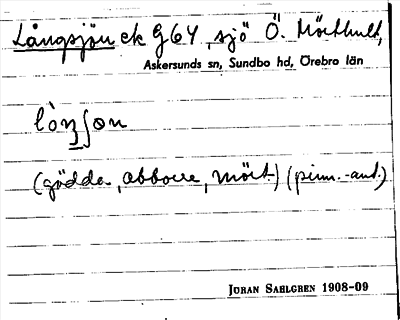 Långsjön ek G64, sjö Ö. Mörthult,
Askersunds sn, Sundbo hd, Örebro län
lòŋʃon
(gädda, abborre, mört.) (pinn.-ant.)
JÖRAN SAHLGREN 1908-09